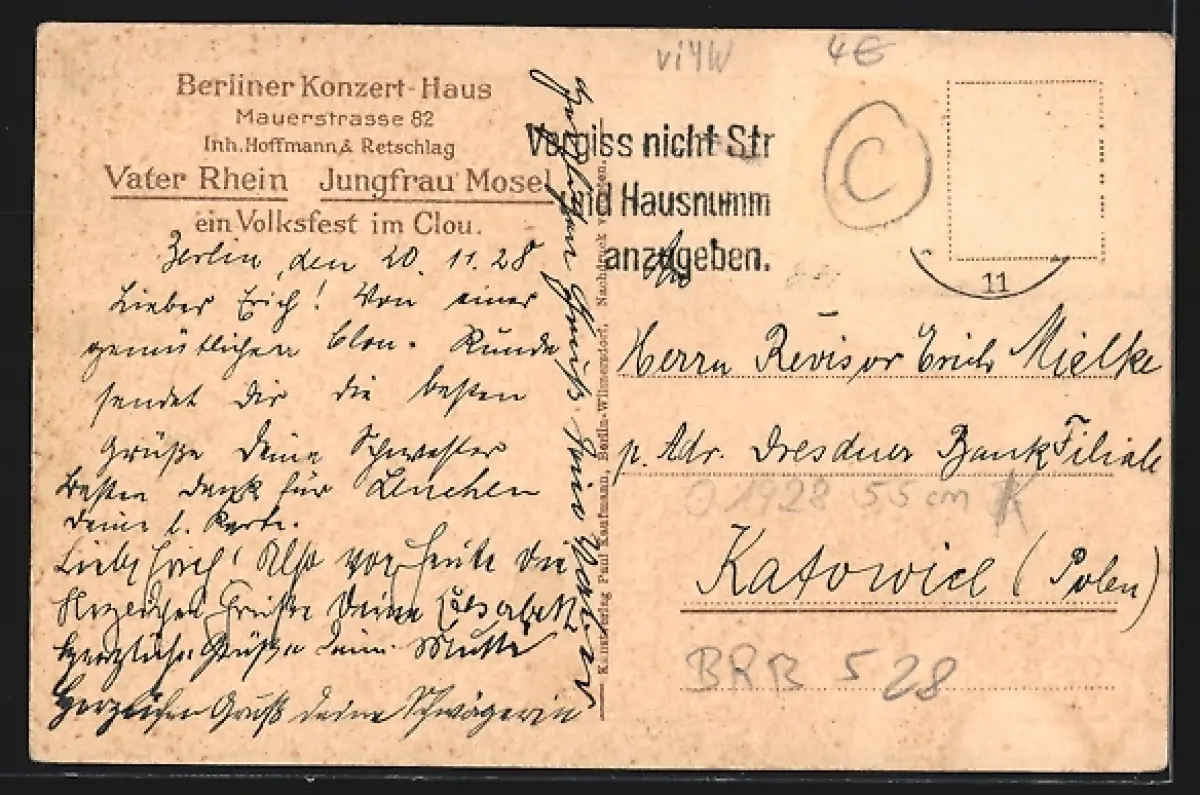 Berliner Konzert-Haus
Mauerstrasse 82
Inh. Hoffmann & Retschlag
Vater Rhein Jungfrau Mosel
ein Volksfest im Clou.
Berlin, den 20. 11. 28
Lieber Erich! Von einer
gemütlichen Clou-Runde
sendet Dir die besten
Grüße Deine Schwester
Besten Dank für Lenchen
Deine l. Karte.
Lieber Erich! Also heute die
Herzlichen Grüße Deine Elisabeth
Herzliche Grüße Deine Mutti
Herzlichen Gruß deine Schwägerin
Herzlichen Gruß Dein
Kunstverlag Paul Kaufmann, Berlin-Wilmersdorf. Nachdruck
vi4W
4€
C
Vergiss nicht Str
und Hausnumm
anzugeben.
11
Herrn Revisor Erich Mielke
p. Adr. Dresdner Bank Filiale
O 1928 55 cm K
Katowice (Polen)
BRB 528